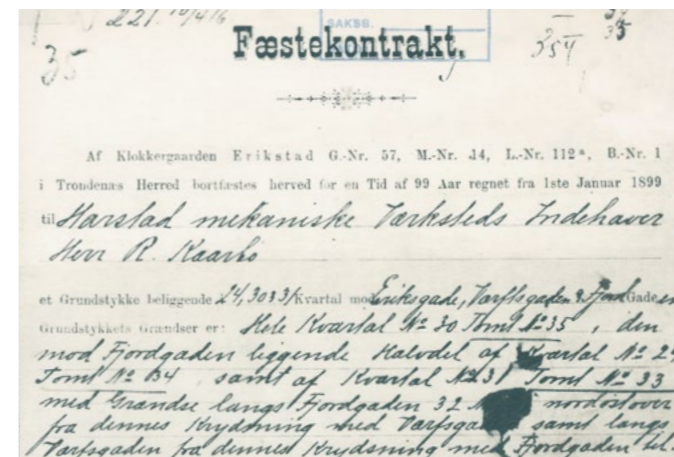 221. 10/4/6
SAKSB.
35
Fæstekontrakt.
354
35
Af Klokkergaarden Erikstad G.-Nr. 57, M.-Nr. 14, L.-Nr. 112a, B.-Nr. 1
i Trondenæs Herred bortfæstes herved for en Tid af 99 Aar regnet fra 1ste Januar 1899
til Harstad mekaniske Værksteds Indehaver
Herr R. Kaarbø
et Grundstykke beliggende i Kvartal mod Eriksgade, Værftsgaden & Fjord Gaden
Grundstykkets Grændser er: Hele Kvartal No 30 Tomt No 35, den
mod Fjordgaden liggende Halvdel af Kvartal No 29
Tomt No 34 samt af Kvartal No 31 Tomt No 33
med Grændse langs Fjordgaden 32 nordostover
fra dennes Krydsning med Værfsgaden samt langs
Værfsgaden fra dennes Krydsning med Fjordgaden til